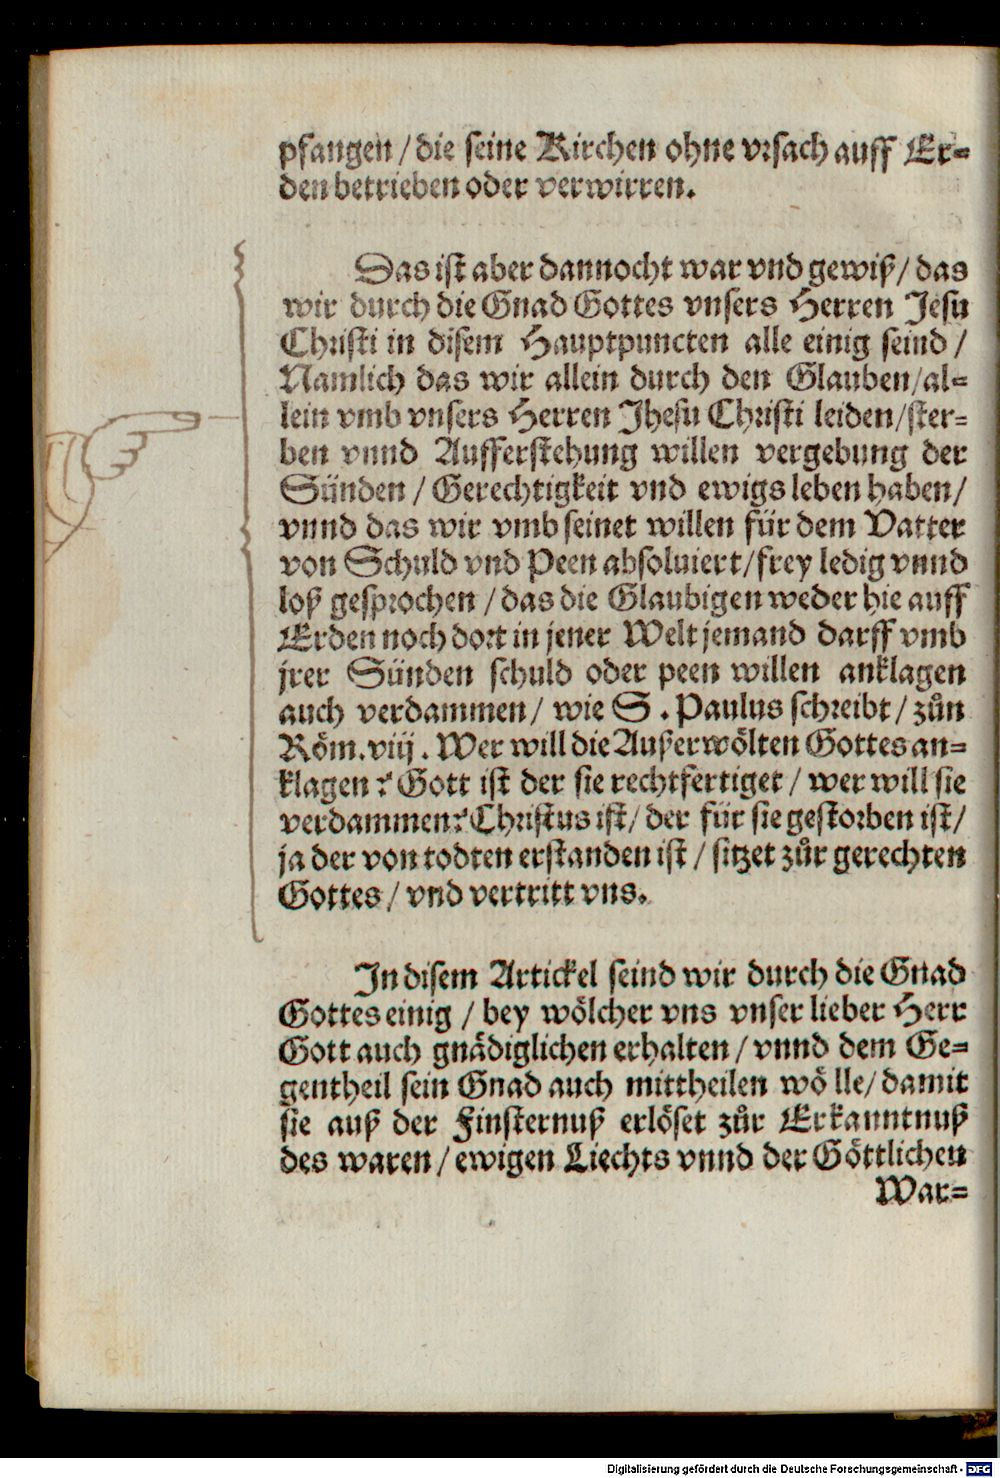 pfangen / die seine Kirchen ohne vrsach auff Er=
den betrieben oder verwirren.
Das ist aber dannocht war vnd gewiß / das
wir durch die Gnad Gottes vnsers Herren Jesu
Christi in disem Hauptpuncten alle einig seind /
Namlich das wir allein durch den Glauben / al=
lein vmb vnsers Herren Jhesu Christi leiden / ster=
ben vnnd Aufferstehung willen vergebung der
Sünden / Gerechtigkeit vnd ewigs leben haben /
vnnd das wir vmb seinet willen für dem Vatter
von Schuld vnd Peen absoluiert / frey ledig vnnd
loß gesprochen / das die Glaubigen weder hie auff
Erden noch dort in jener Welt jemand darff vmb
jrer Sünden schuld oder peen willen anklagen
auch verdammen / wie S. Paulus schreibt / zůn
Röm. viij. Wer will die Außerwölten Gottes an=
klagen? Gott ist der sie rechtfertiget / wer will sie
verdammen? Christus ist / der für sie gestorben ist /
ja der von todten erstanden ist / sitzet zůr gerechten
Gottes / vnd vertritt vns.
In disem Artickel seind wir durch die Gnad
Gottes einig / bey wölcher vns vnser lieber Herr
Gott auch gnädiglichen erhalten / vnnd dem Ge=
gentheil sein Gnad auch mittheilen wölle / damit
sie auß der Finsternuß erlöset zůr Erkanntnuß
des waren / ewigen Liechts vnnd der Göttlichen
War=
Digitalisierung gefördert durch die Deutsche Forschungsgemeinschaft - DFG